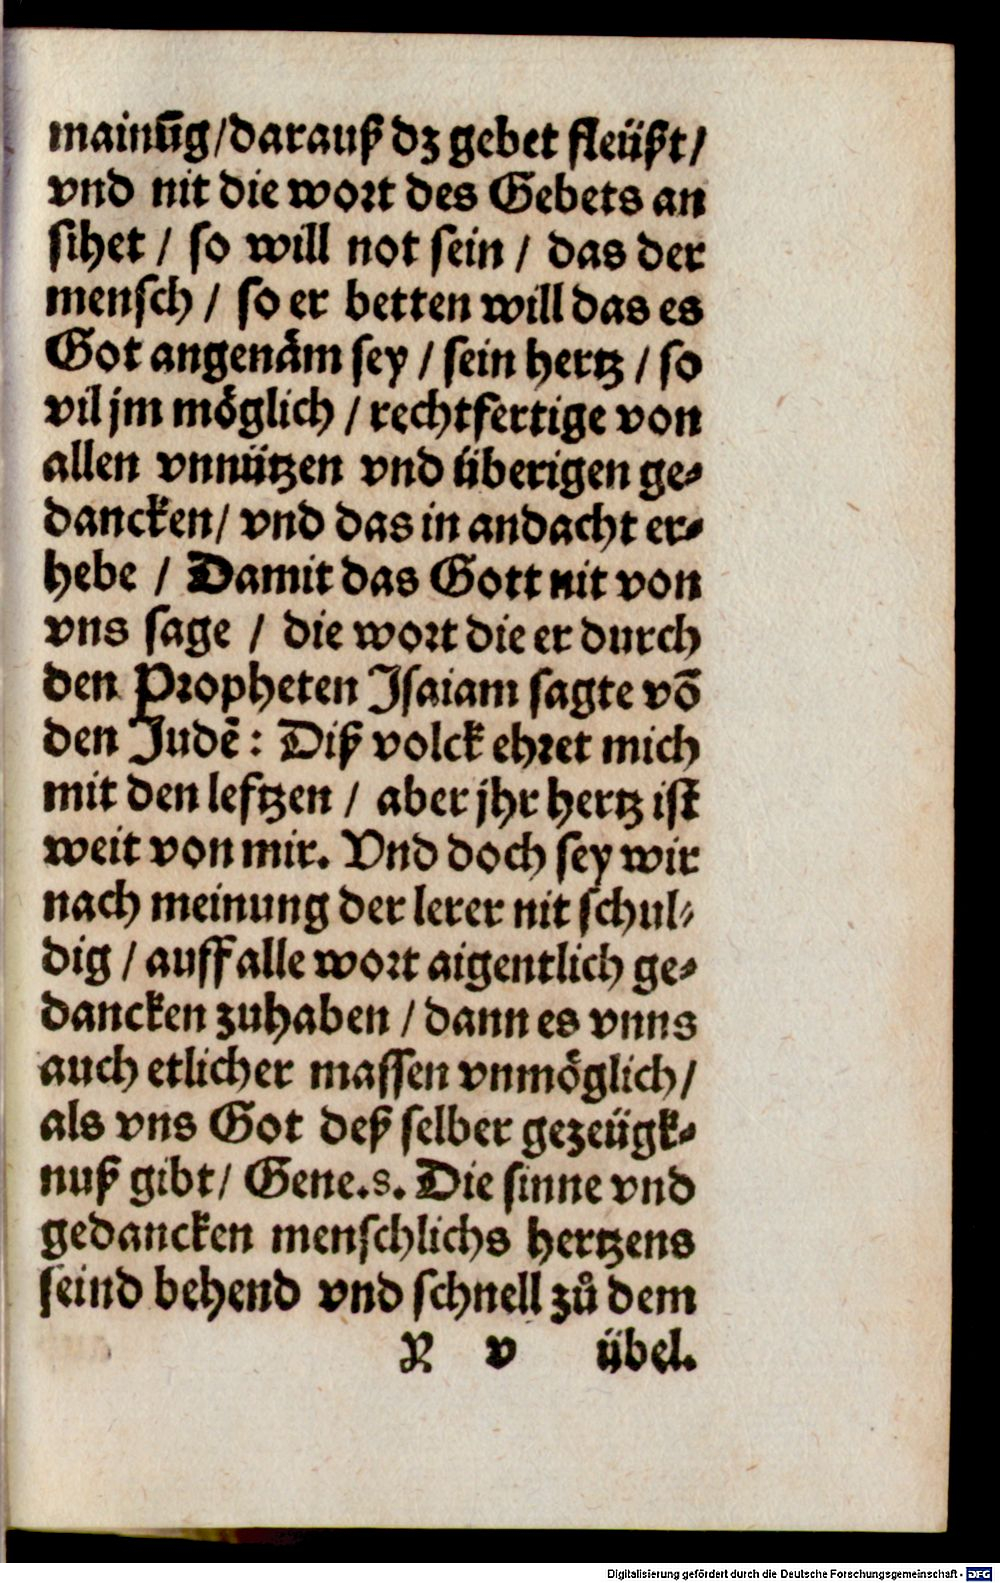 mainūg/darauß dz gebet fleüßt/
vnd nit die wort des Gebets an
sihet / so will not sein / das der
mensch / so er betten will das es
Got angenäm sey / sein hertz / so
vil jm möglich / rechtfertige von
allen vnnützen vnd überigen ge-
dancken/ vnd das in andacht er-
hebe / Damit das Gott nit von
vns sage / die wort die er durch
den Propheten Isaiam sagte vō
den Judē: Diß volck ehret mich
mit den leftzen / aber jhr hertz ist
weit von mir. Vnd doch sey wir
nach meinung der lerer nit schul-
dig / auff alle wort aigentlich ge-
dancken zuhaben / dann es vnns
auch etlicher massen vnmöglich/
als vns Got deß selber gezeügk-
nuß gibt/ Gene.s. Die sinne vnd
gedancken menschlichs hertzens
seind behend vnd schnell zů dem
v übel.
Digitalisierung gefördert durch die Deutsche Forschungsgemeinschaft - DFG